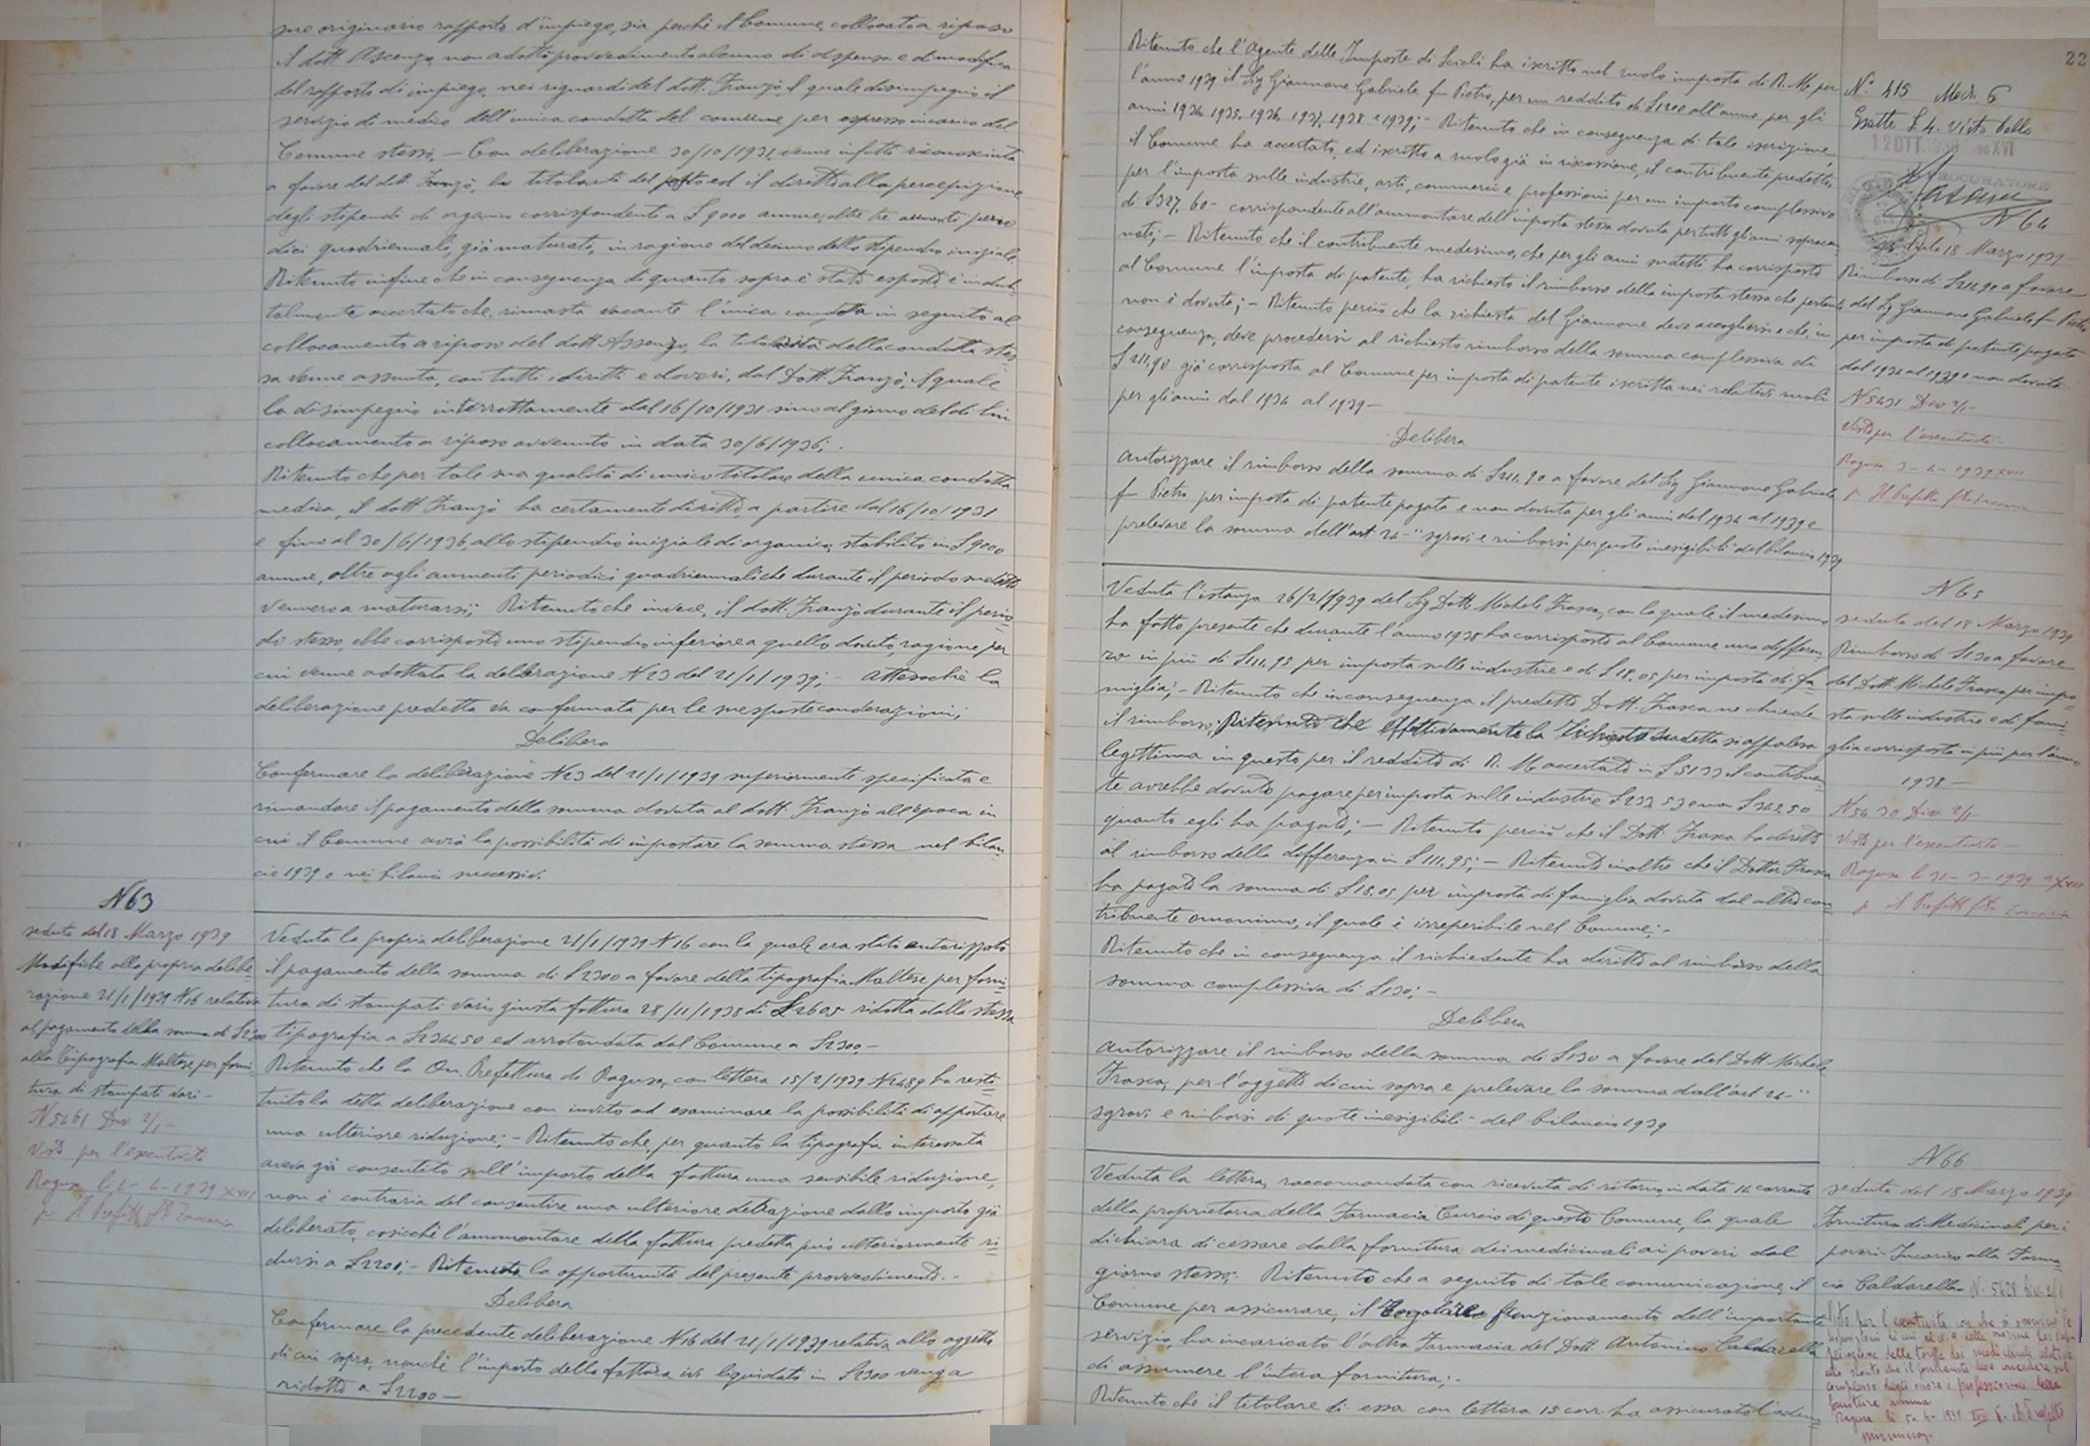 suo originario rapporto d'impiego, sia perchè il Comune, collocato a riposo
il dott. Ascenzo, non adottò provvedimento alcuno di dispensa e di modifica
del rapporto di impiego, nei riguardi del dott. Franzò, il quale disimpegnò il
servizio di medico dell'unica condotta del comune per espresso incarico del
Comune stesso, — Con deliberazione 30/10/1931 venne infatti riconosciuta
a favore del dott. Franzò, la titolarità del posto ed il diritto alla percepizione
degli stipendi di organico corrispondenti a £ 9000 annue, oltre tre aumenti perio
dici quadriennali, già maturati, in ragione del decimo dello stipendio iniziale.
Ritenuto infine che in conseguenza di quanto sopra è stato esposto è indub-
talmente accertato che, rimasta vacante l'unica condotta in seguito al
collocamento a riposo del dott. Assenzo, la titolarità della condotta stes-
sa venne assunta, con tutti i diritti e doveri, dal Dott. Franzò, il quale
la disimpegnò interrottamente dal 16/10/1931 sino al giorno del di lui
collocamento a riposo avvenuto in data 30/6/1936; -
Ritenuto che per tale sua qualità di unico titolare della unica condotta
medica, il dott. Franzò ha certamente diritto, a partire dal 16/10/1931
e fino al 30/6/1936, allo stipendio iniziale di organico, stabilito in £ 9000
annue, oltre agli aumenti periodici quadriennali che durante il periodo suddetto
vennero a maturarsi; Ritenuto che invece, il dott. Franzò durante il perio-
do stesso, ebbe corrisposto uno stipendio inferiore a quello dovuto, ragione per
cui venne adottata la deliberazione N 23 del 21/1/1939; - Attesochè la
deliberazione predetta va confermata per le suesposte considerazioni;
Delibera
Confermare la deliberazione N 23 del 21/1/1939 superiormente specificata e
rimandare il pagamento della somma dovuta al dott. Franzò all'epoca in
cui il Comune avrà la possibilità di impostare la somma stessa nel bilan-
cio 1939 o nei bilanci successivi.
N 63
seduta del 18 Marzo 1939
Modifiche alla propria delibe
razione 21/1/1939 N 16 relativa
al pagamento della somma di £ 2300
alla Tipografia Maltese per forni
tura di stampati vari -
N 5461 Div 2/1 -
Visto per l'esecutorietà
Ragusa li 1 - 4 - 1939 XVII
p. Il Prefetto
Veduta la propria deliberazione 21/1/1939 N 16 con la quale era stato autorizzato
il pagamento della somma di £ 2300 a favore della tipografia Maltese per forni-
tura di stampati vari, giusta fattura 28/11/1938 di £ 2605 ridotta dalla stessa
tipografia a £ 2344,50 ed arrotondata dal Comune a £ 2300, -
Ritenuto che la On. Prefettura di Ragusa, con lettera 15/2/1939 N 2489 ha resti
tuito la detta deliberazione con invito ad esaminare la possibilità di apportare
una ulteriore riduzione; - Ritenuto che, per quanto la tipografia interessata
aveva già consentito sull'importo della fattura una sensibile riduzione,
non è contraria del consentire una ulteriore detrazione dallo importo già
deliberato, cosicchè l'ammontare della fattura predetta può ulteriormente ri-
dursi a £ 2200; - Ritenuta la opportunità del presente provvedimento. -
Delibera
Confermare la precedente deliberazione N 16 del 21/1/1939 relativa allo oggetto
di cui sopra, nonchè l'importo della fattura ivi liquidato in £ 2300 venga
ridotto a £ 2200 —
22
Ritenuto che l'Agente delle Imposte di Scicli ha iscritto nel ruolo imposta di R. M. per
l'anno 1939 il Sig Giannone Gabriele fu Pietro, per un reddito di £ 1200 all'anno per gli
anni 1934, 1935, 1936, 1937, 1938 e 1939; - Ritenuto che in conseguenza di tale iscrizione
il Comune ha accertato, ed iscritto a ruolo già in riscossione, il contribuente predetto,
per l'imposta sulle industrie, arti, commerci e professioni per un importo complessivo
di £ 327,60 - corrispondente all'ammontare dell'imposta stessa dovuta per tutti gli anni sopracen-
nati; - Ritenuto che il contribuente medesimo, che per gli anni sudetti ha corrisposto
al Comune l'imposta di patente, ha richiesto il rimborso della imposta stessa che pertanto
non è dovuta; - Ritenuto perciò che la richiesta del Giannone deve accogliersi e che, in
conseguenza, deve procedersi al richiesto rimborso della somma complessiva di
£ 211,90 già corrisposta al Comune per imposta di patente iscritta nei relativi ruoli
per gli anni dal 1934 al 1939 -
Delibera
Autorizzare il rimborso della somma di £ 211,90 a favore del Sig Giannone Gabriele
fu Pietro per imposta di patente pagata e non dovuta per gli anni dal 1934 al 1939 e
prelevare la somma dell'art 24 - "sgravi e rimborsi per quote inesigibili" del bilancio 1939
N° 415 Mod. 6
Esatte £ 4. visto bollo
12 OTT. XVI
PROCURATORE
N 64
seduta 18 Marzo 1939 -
Rimborso di £ 211,90 a favore
del Sig Giannone Gabriele fu Pietro
per imposta di patente pagata
dal 1934 al 1939 e non dovuta -
N 5431 Div 2/1 -
Visto per l'esecutorietà -
Ragusa 3 - 4 - 1939 XVII
p Il Prefetto
Veduta l'istanza 26/2/1939 del Sig Dott. Michele Frasca, con la quale il medesimo
ha fatto presente che durante l'anno 1938 ha corrisposto al Comune una differen-
za in più di £ 111,95 per imposta sulle industrie e di £ 18,05 per imposta di fa-
miglia; - Ritenuto che in conseguenza il predetto Dott. Frasca ne chiede
il rimborso; Ritenuto che effettivamente la richiesta sudetta si appalesa
legittima in quanto per il reddito di R. M. accertato in £ 5133 il contribuen-
te avrebbe dovuto pagare per imposta sulle industrie £ 233 53 e non £ 363,50
quanto egli ha pagato; - Ritenuto perciò che il Dott. Frasca ha diritto
al rimborso della differenza in £ 111,95; - Ritenuto inoltre che il Dottor Frasca
ha pagato la somma di £ 18,05 per imposta di famiglia dovuta dal altro con-
tribuente omonimo, il quale è irreperibile nel Comune; -
Ritenuto che in conseguenza il richiedente ha diritto al rimborso della
somma complessiva di £ 130; -
Delibera
Autorizzare il rimborso della somma di £ 130 a favore del Dott Michele
Frasca, per l'oggetto di cui sopra e prelevare la somma dall'art 24 - "
sgravi e rimborsi di quote inesigibili" del bilancio 1939
N 65
seduta del 18 Marzo 1939
Rimborso di £ 130 a favore
del Dott. Michele Frasca per impo-
sta sulle industrie e di fami-
glia corrisposta in più per l'anno
1938 -
N 5430 Div 2/1 -
Visto per l'esecutorietà -
Ragusa li 31 - 3 - 1939 XVII
p Il Prefetto
Veduta la lettera, raccomandata con ricevuta di ritorno, in data 14 corrente
della proprietaria della Farmacia Curcio di questo Comune, la quale
dichiara di cessare dalla fornitura dei medicinali ai poveri dal
giorno stesso; Ritenuto che a seguito di tale comunicazione, il
Comune per assicurare, il regolare funzionamento dell'importante
servizio, ha incaricato l'altra Farmacia del Dott. Antonino Caldarella
di assumere l'intera fornitura; -
Ritenuto che il titolare di essa con lettera 15 corr. ha assicurato l'adem-
N 66
seduta del 18 Marzo 1939
Fornitura di Medicinali per i
poveri - Incarico alla Farma-
cia Caldarella - N. 5428 Div. 2/1
Visto per l'esecutorietà